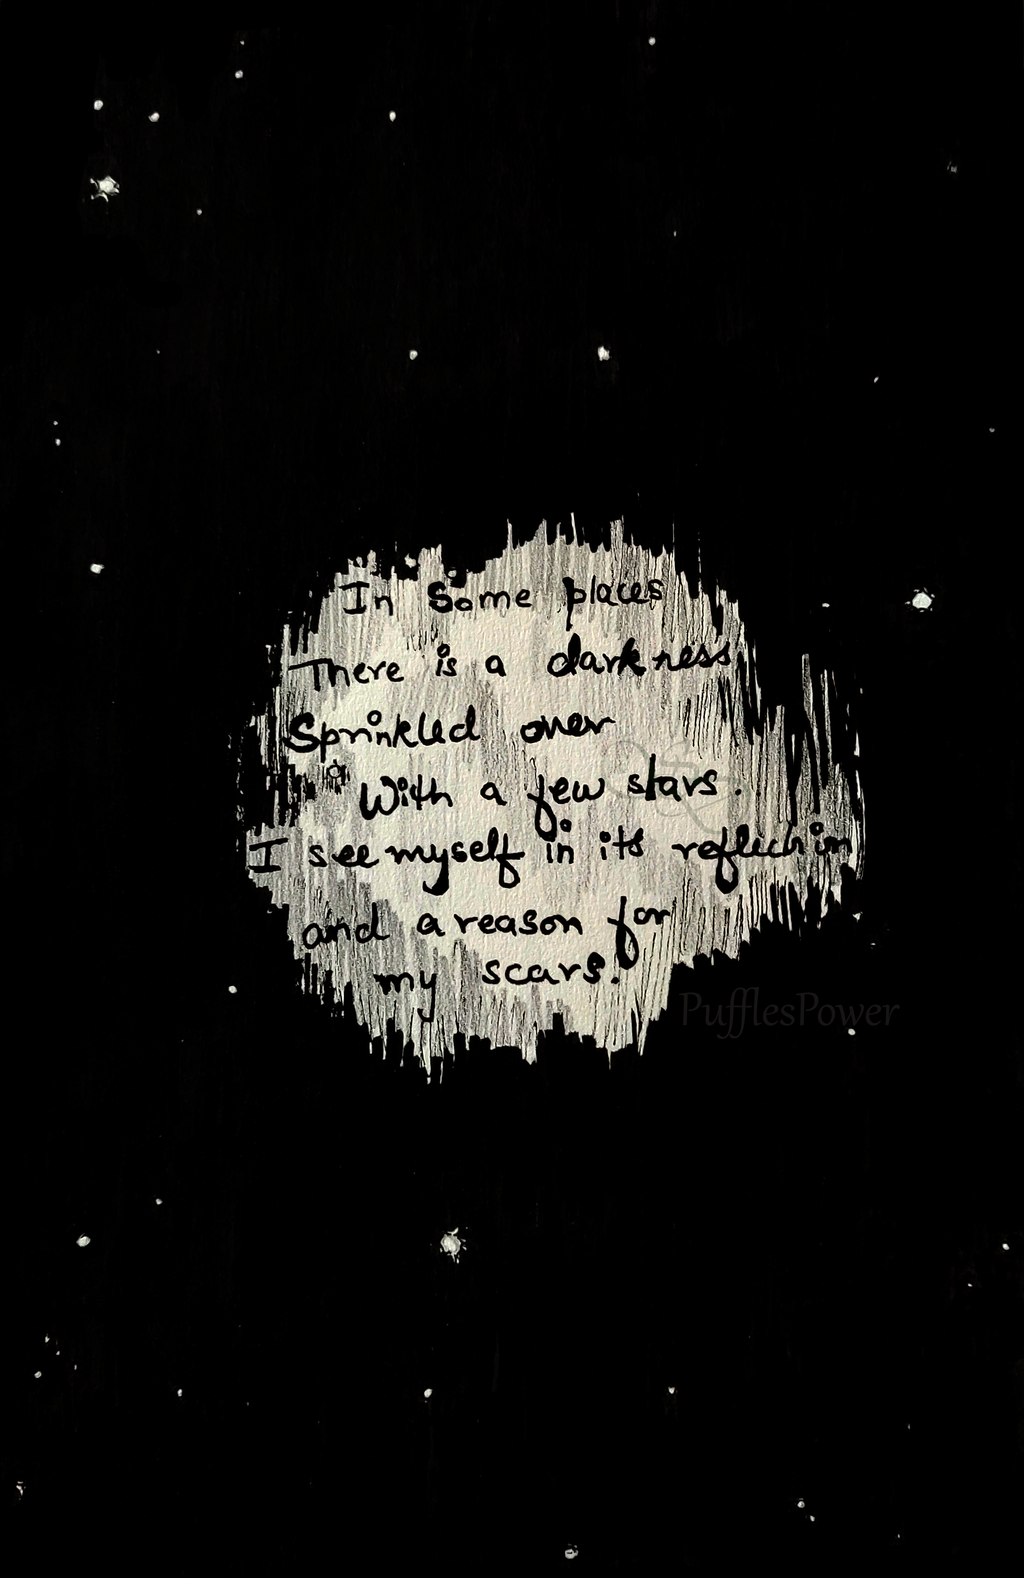 In Some places
There is a darkness
Sprinkled over
With a few stars.
I see myself in its reflection
and a reason for
my scars.
PufflesPower